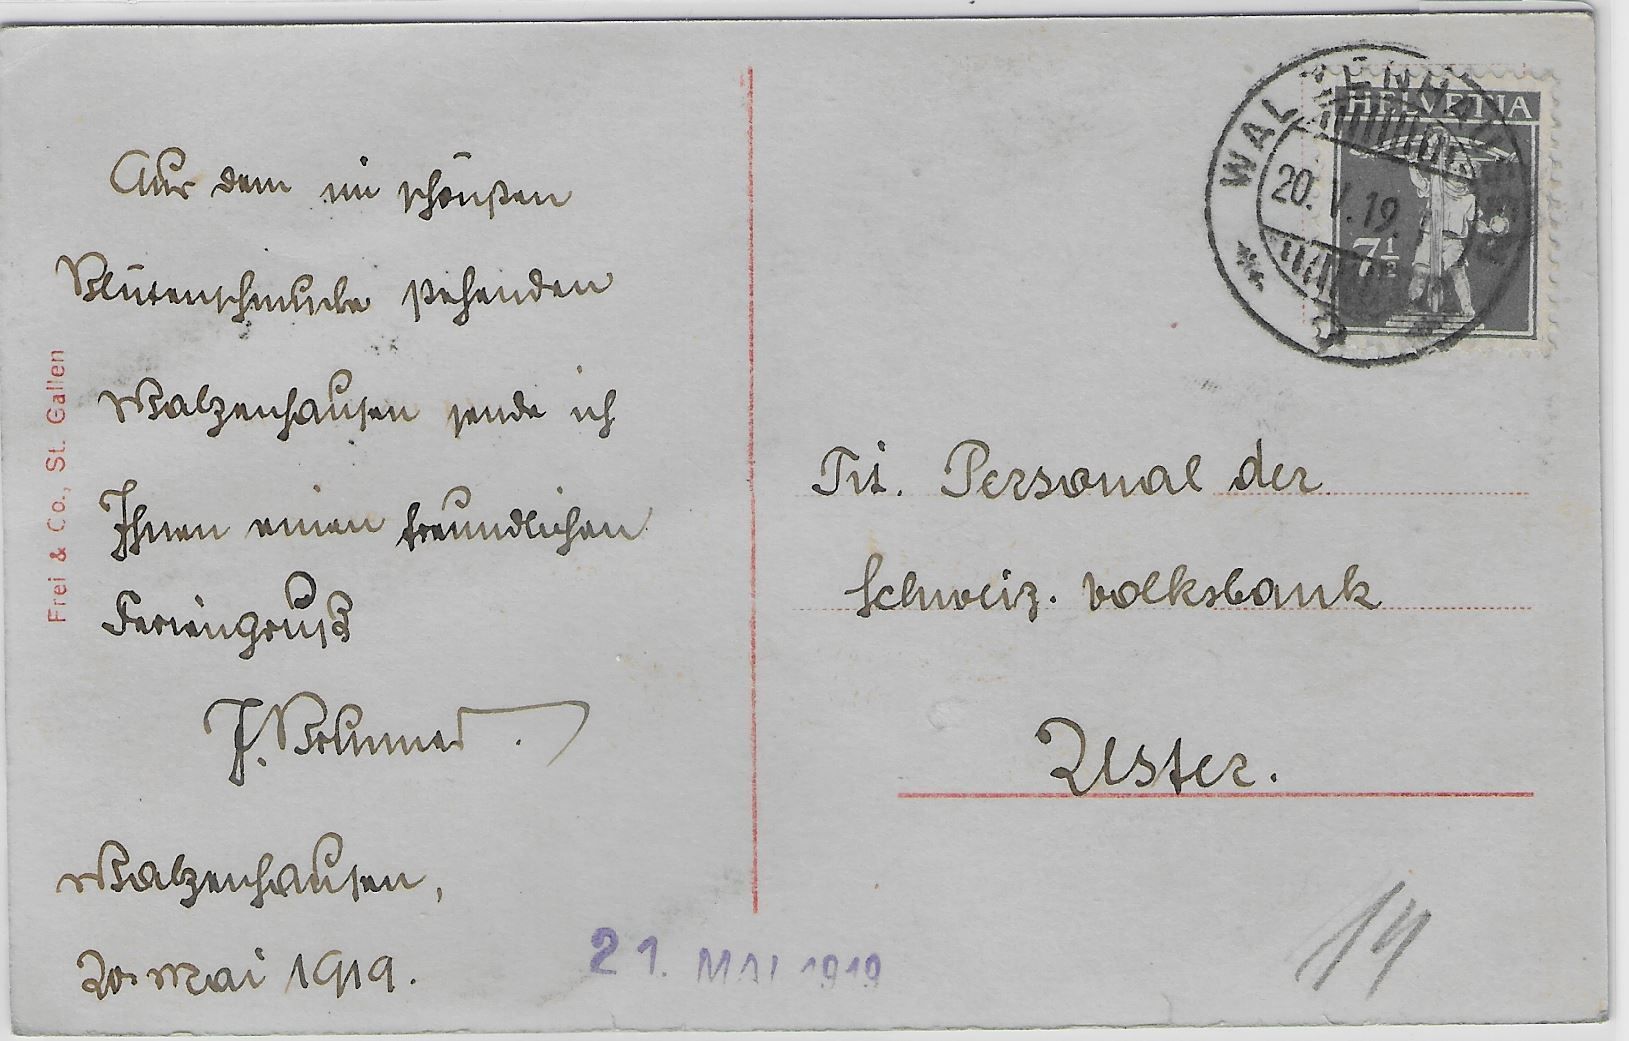 Aus dem im schönsten
Blütenschmucke stehenden
Walzenhausen sende ich
Ihnen einen freundlichen
Feriengruß
J.
Walzenhausen,
20. Mai 1919.
Frei & Co., St. Gallen
21. MAI 1919
WALZENHAUSEN
20. V. 19.
HELVETIA
7½
Tit. Personal der
Schweiz. Volksbank
Uster.